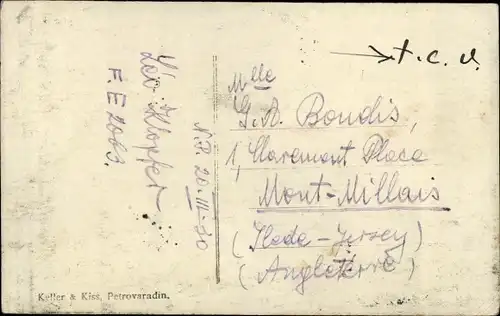 → t. c. v.
Mlle
G. A. Boudis,
1, Claremont Place
Mont-Millais
(Ile de - Jersey)
(Angleterre)
Léo Klopfer
F. E 2063.
20-III-30
Keller & Kiss, Petrovaradin.